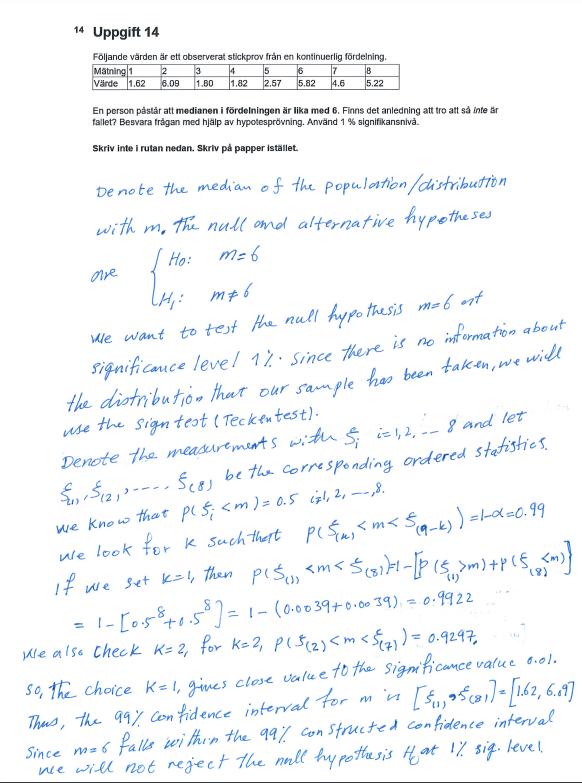 14 Uppgift 14
Följande värden är ett observerat stickprov från en kontinuerlig fördelning.
Mätning 1 2 3 4 5 6 7 8
Värde 1.62 6.09 1.80 1.82 2.57 5.82 4.6 5.22
En person påstår att medianen i fördelningen är lika med 6. Finns det anledning att tro att så inte är
fallet? Besvara frågan med hjälp av hypotesprövning. Använd 1 % signifikansnivå.
Skriv inte i rutan nedan. Skriv på papper istället.
Denote the median of the population/distribution
with m. The null and alternative hypotheses
are { H0: m=6
H1: m≠6
We want to test the null hypothesis m=6 at
significance level 1%. Since there is no information about
the distribution that our sample has been taken, we will
use the sign test (Teckentest).
Denote the measurements with ξi i=1,2, --- 8 and let
ξ(1), ξ(2), ---- ξ(8) be the corresponding ordered statistics.
We know that P(ξi < m) = 0.5 i=1,2, ---, 8.
We look for K such that P(ξ(K) < m < ξ(9-K)) = 1-α = 0.99
If we set K=1, then P(ξ(1) < m < ξ(8)) = 1-[P(ξ(1) > m) + P(ξ(8) < m)]
= 1-[0.5^8 + 0.5^8] = 1-(0.0039+0.0039) = 0.9922
We also check K=2, for K=2, P(ξ(2) < m < ξ(7)) = 0.9297.
So, the choice K=1, gives close value to the significance value 0.01.
Thus, the 99% confidence interval for m is [ξ(1), ξ(8)] = [1.62, 6.09]
Since m=6 falls within the 99% constructed confidence interval
we will not reject the null hypothesis H0 at 1% sig. level.